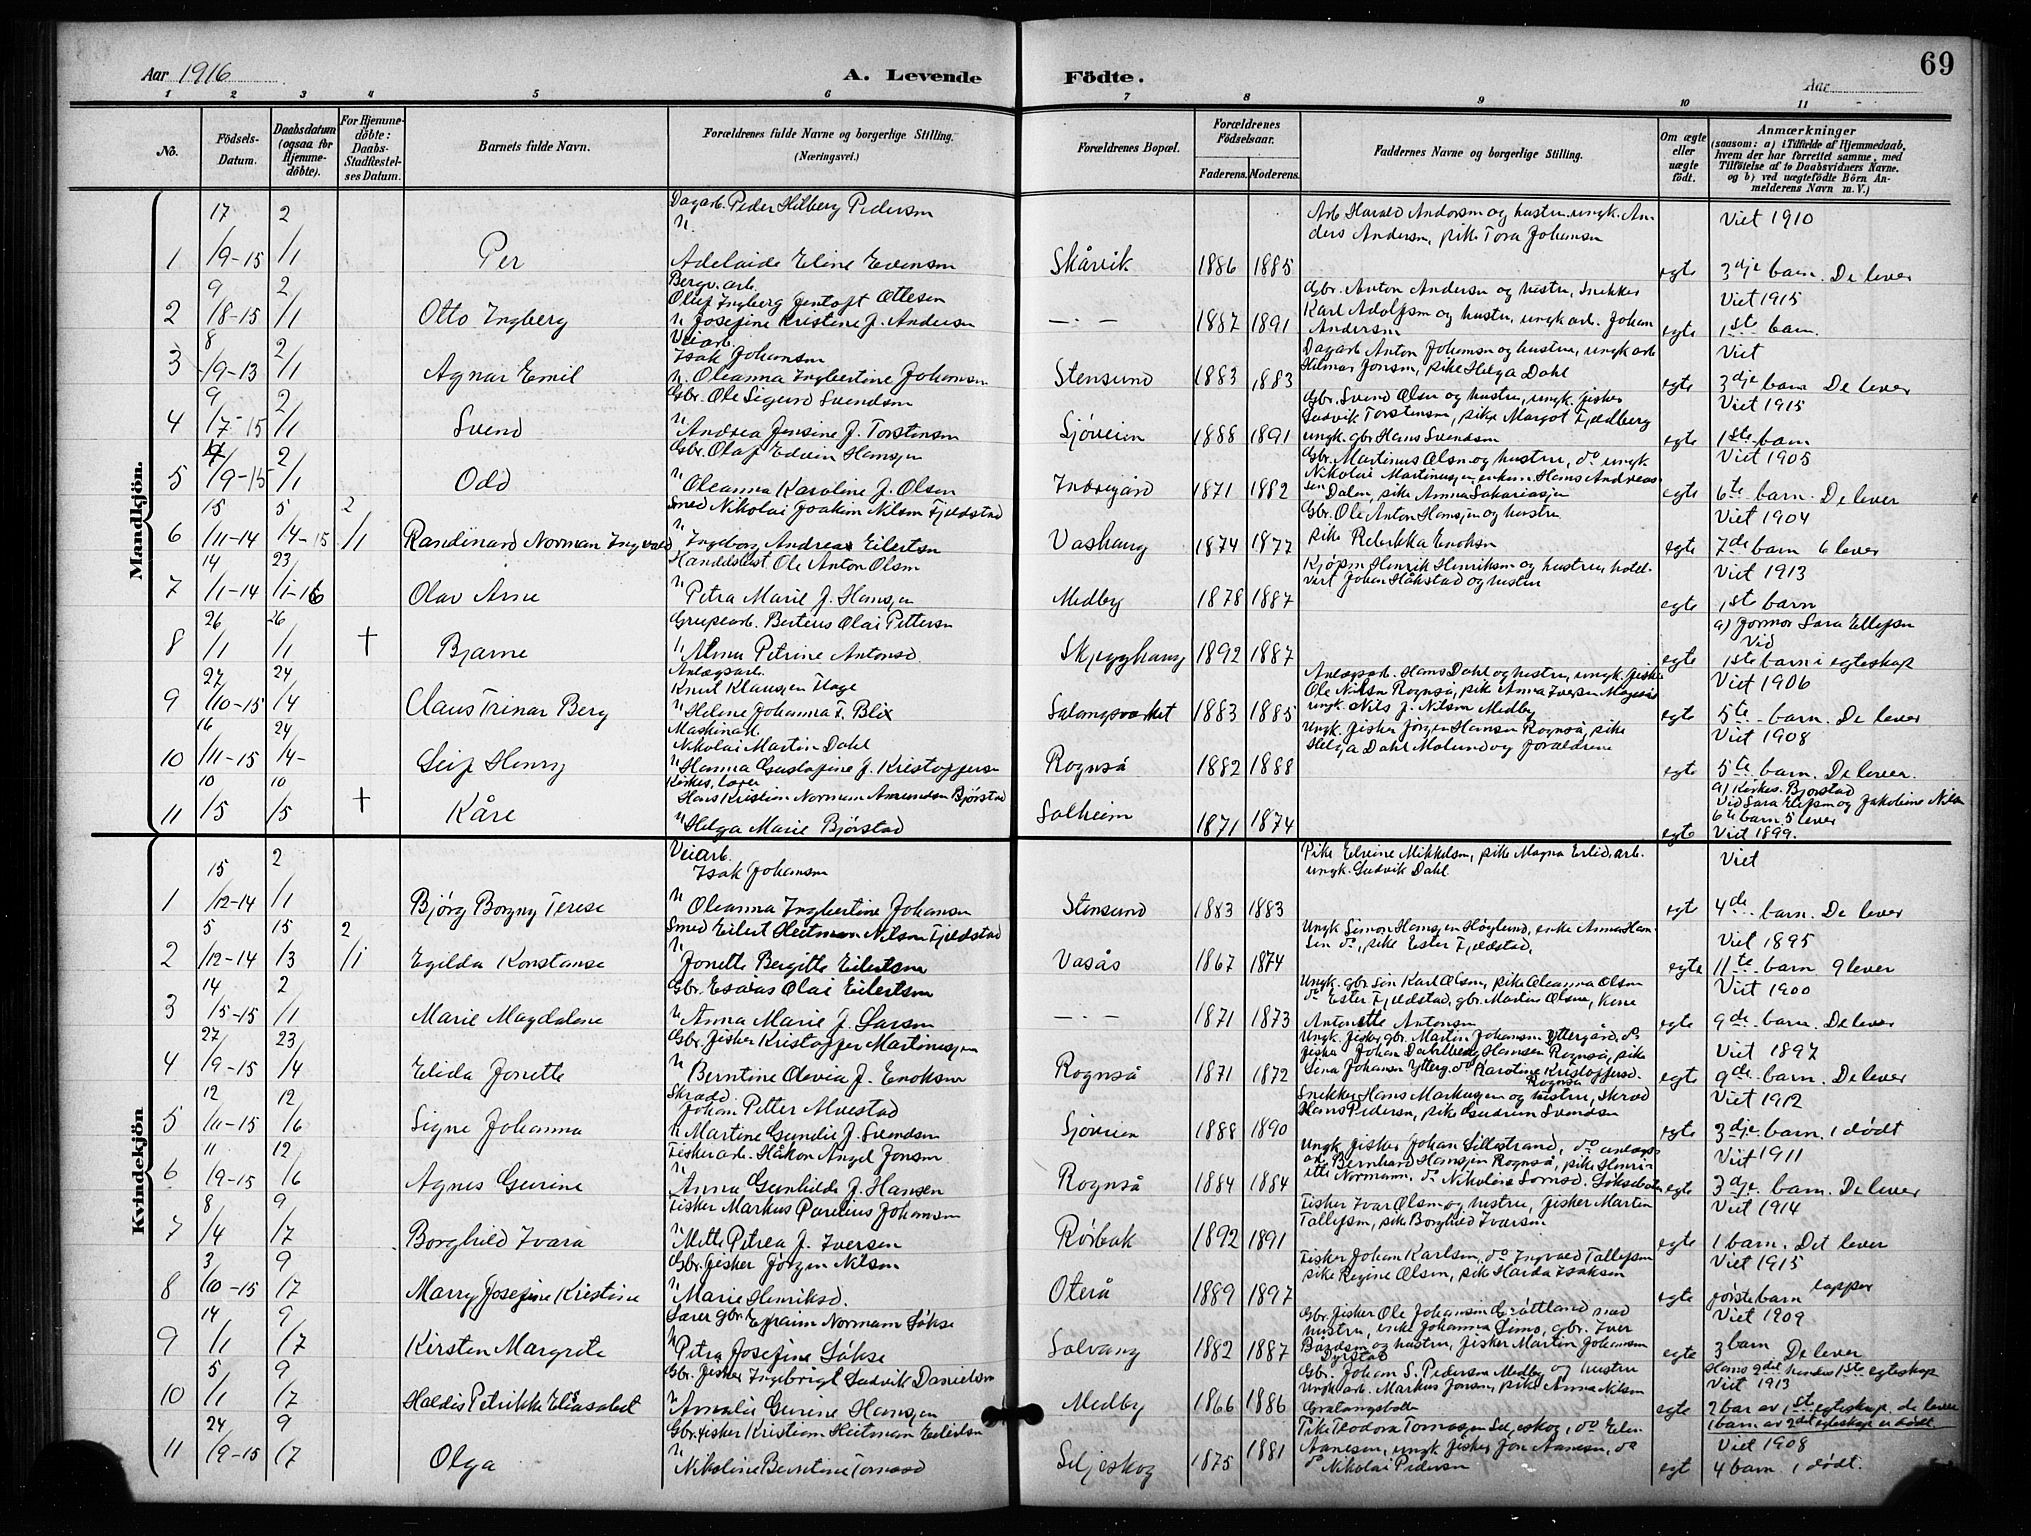 69
Aar 1916
A. Levende Födte.
Aar
1 2 3 4 5 6 7 8 9 10 11
No.
Födsels-Datum.
Daabsdatum (ogsaa for Hjemme-döbte).
For Hjemme-döbte: Daabs-Stadfæstel-ses Datum.
Barnets fulde Navn.
Forældrenes fulde Navne og borgerlige Stilling. (Næringsvei.)
Forældrenes Bopæl.
Forældrenes Födselsaar.
Faderens. Moderens.
Faddernes Navne og borgerlige Stilling.
Om ægte eller uægte födt.
Anmærkninger
(saasom: a) i Tilfælde af Hjemmedaab, hvem der har forrettet samme, med Tilföielse af to Daabsvidners Navne. og b) ved uægtefödte Börn An-melderens Navn m. V.)
Mandkjön.
1 17/9-15 2/1 Per
Dagarb. Peder Hilberg Pedersen
H. Adelaide Eline Evensen
Skårvik 1886 1885
Arb Harald Andersen og hustru, ungk. An-
ders Andersen, pike Tora Johansen
egte Viet 1910
3dje barn. De lever
2 9/8-15 2/1 Otto Ingberg
Bergv. arb.
Oluf Ingberg Jentoft Ottesen
H. Josefine Kristine J. Andersen
— . — 1887 1891
Gbr. Anton Andersen og hustru, snekker
Karl Adolfsen og hustru, ungk arb. Johan
Andersen
egte Viet 1915
1ste barn.
3 8/9-13 2/1 Agnar Emil
Veiarb.
Isak Johansen
H. Oleanna Ingbertine Johansen
Stensund 1883 1883
Dagarb Anton Johansen og hustru, ungk arb
Hilmar Jonsen, pike Helga Dahl
egte Viet
3dje barn De lever
4 9/7-15 2/1 Svend
Gbr. Ole Sigurd Svendsen
H. Andrea Jensine J. Torstensen
Sjøveien 1888 1891
Gbr. Svend Olsen og hustru, ungk. fisker
Ludvik Torstensen, pike Margot Fjeldberg
ungk. gbr Hans Svendsen
egte Viet 1915
1ste barn
5 /9-15 2/1 Odd
Gbr. Olaf Edvin Hansen
H. Oleanna Karoline J. Olsen
Indregård 1871 1882
Gbr. Martinus Olsen og hustru, do ungk
Nikolai Martinussen, enkem Hans Andreas-
sen Dalen, pike Anna Sakariassen
egte Viet 1905
6te barn. De lever
6 15/11-14 5/14-15 2/1 Randinard Norman Ingvald
Smed Nikolai Joakim Nilsen Fjeldstad
H. Ingeborg Andreas Eilertsen
Vashaug 1874 1877
Gbr. Ole Anton Hansen og hustru
pike Rebekka Enoksen
egte Viet 1904
7de barn 6 lever
7 14/1-14 23/1-16 Olav Arne
Handelsbest. Ole Anton Olsen
H. Petra Marie J. Hansen
Medby 1878 1887
Kjøpm Henrik Henriksen og hustru, hotel-
vert Johan Håkstad og hustru
egte Viet 1913
1ste barn
8 26/1 26/1 † Bjarne
Grubearb. Berteus Olai Pettersen
H. Alma Petrine Antonsd.
Skjegghaug 1892 1887
egte a) Jormor Sara Ellefsen
Vid
1ste barn i egteskap
9 27/10-15 24/4 Claus Trinar Berg
Anlægsarb.
Knut Klausen Flage
H. Helene Johanna F. Blix
Salangsverket 1883 1885
Anlægsarb. Hans Dahl og hustru, ungk. fisker
Ole Nilsen Rognså, pike Anna Iversen
ungk. Nils J. Nilsen Medby
egte Viet 1906
5te barn. De lever
10 16/11-15 24/4- Leif Henry
Maskinarb.
Nikolai Martin Dahl
H. Hanna Gustafine J. Kristoffersen
Rognså 1882 1888
Ungk. fisker Jørgen Hansen Rognså, pike
Helga Dahl Molund og forældrene
egte Viet 1908
5te barn. De lever.
11 10/5 10/5 † Kåre
Kirkes, lærer
Hans Kristian Norman Amundsen Bjørstad
H. Helga Marie Bjørstad
Solheim 1871 1874
egte a) Kirkes. Bjørstad
Vid Sara Elefsen og Jakobine Nilsen
6te barn 5 lever
Viet 1899.
Kvindekjön
1 15/12-14 2/1 Bjørg Borgny Terese
Veiarb.
Isak Johansen
H. Oleanna Ingbertine Johansen
Stensund 1883 1883
Pike Elvine Mikkelsen, pike Magna Erlid, arb.
ungk. Ludvik Dahl
egte Viet
4de barn. De lever
2 5/12-14 15/3 2/1 Egilda Konstanse
Smed Eilert Heitman Nilsen Fjeldstad
H. Jonette Bergitte Eilertsen
Vasås 1867 1874
Ungk. Simon Hansen Høglund, enke Anna Han-
sen do, pike Ester Fjeldstad,
egte Viet 1895
11te barn 9 lever
3 14/5-15 2/1 Marie Magdalene
Gbr. Esaias Olai Eilertsen
H. Anna Marie J. Larsen
— . — 1871 1873
Ungk. gbr søn Karl Olsen, pike Oleanna Olsen
do Ester Fjeldstad, gbr. Martin Olsen, kone
Antonette Antonsen
egte Viet 1900
9de barn. De lever
4 27/9-15 23/4 Elida Jonette
Gbr. fisker Kristoffer Martinussen
H. Berntine Olevia J. Enoksen
Rognså 1871 1872
Ungk. fisker, gbr. Martin Johansen Yttergård, do
fisker Johan Dahlberg Hansen Rognså, pike
Lina Johansen Ytterg. do Karoline Kristoffersd.
Rognså
egte Viet 1897
9de barn. De lever
5 12/11-15 12/6 Signe Johanna
Skrædd.
Johan Petter Alvestad
H. Martine Gundie J. Svendsen
Sjøveien 1888 1890
Snekker Hans Markussen og hustru, skræd
Hans Pedersen, pike Gudrun Svendsen
egte Viet 1912
3dje barn, 1 dødt
6 11/9-15 12/6 Agnes Gurine
Fiskerarb. Håkon Angel Jonsen
H. Anna Gunhilde J. Hansen
Rognså 1884 1884
Ungk. fisker Johan Sillestrand, do anlægs-
arb. Bernhard Hansen Rognså, pike Henri-
ette Normann, do Nikoline
egte Viet 1911
3dje barn. De lever
7 8/4 9/7 Borghild Ivara
Fisker Markus Parelius Johansen
H. Mette Petrea J. Iversen
Rørbak 1892 1891
Fisker Ivar Olsen og hustru, fisker Martin
Tallefsen, pike Borghild Iversen
egte Viet 1914
1 barn. Det lever
8 3/10-15 9/7 Marry Josefine Kristine
Gbr. fisker Jørgen Nilsen
H. Marie Henriksd.
Oterå 1889 1897
Fisker Johan Karlsen, do Ingvald Tallefsen
pike Regine Olsen, pike Harda Isaksen
egte Viet 1915
første barn lapper
9 14/1 9/7 Kirsten Margrete
Lærer gbr. Efraim Normann Løkse
H. Petra Josefine Løkse
Solvang 1882 1887
Gbr. fisker Ole Johansen Grøttland med
hustru, enke Johanna Simo, gbr. Iver
Bårdsen og hustru, fisker Martin Johansen
Dyrstad
egte Viet 1909
3 barn De lever
10 5/1 9/7 Haldis Petrikke Eliasabet
Gbr. fisker Ingebrigt Ludvik Danielsen
H. Amalie Gurine Hansen
Medby 1866 1886
Gbr. Johan S. Pedersen Medby og hustru
Ungk arb. Markus Jonsen, pike Anna Nilsen
Gratangsbotn
egte Hans 2det hendes 1ste egteskap
Viet 1913
2 bar av 1ste egteskap. de lever
1 barn av 2det egteskap er dødt
11 24/9-15 9/7 Olga
Gbr. fisker Kristian Heitman Eilertsen
H. Nikoline Berntine Tomasd
Seljeskog 1875 1881
Pike Teodora Tomassen Seljeskog, do Elen
Aanesen, ungk fisker Jon Aanesen, do
do Nikolai Pedersen
egt Viet 1908
4 barn 1 dødt.